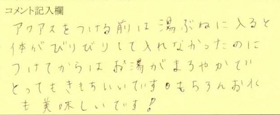 コメント記入欄
アクアスをつける前は湯ぶねに入ると
体がぴりぴりして入れなかったのに
つけてからはお湯がまろやかで
とってもきもちいいです。もちろんお水
も美味しいです!